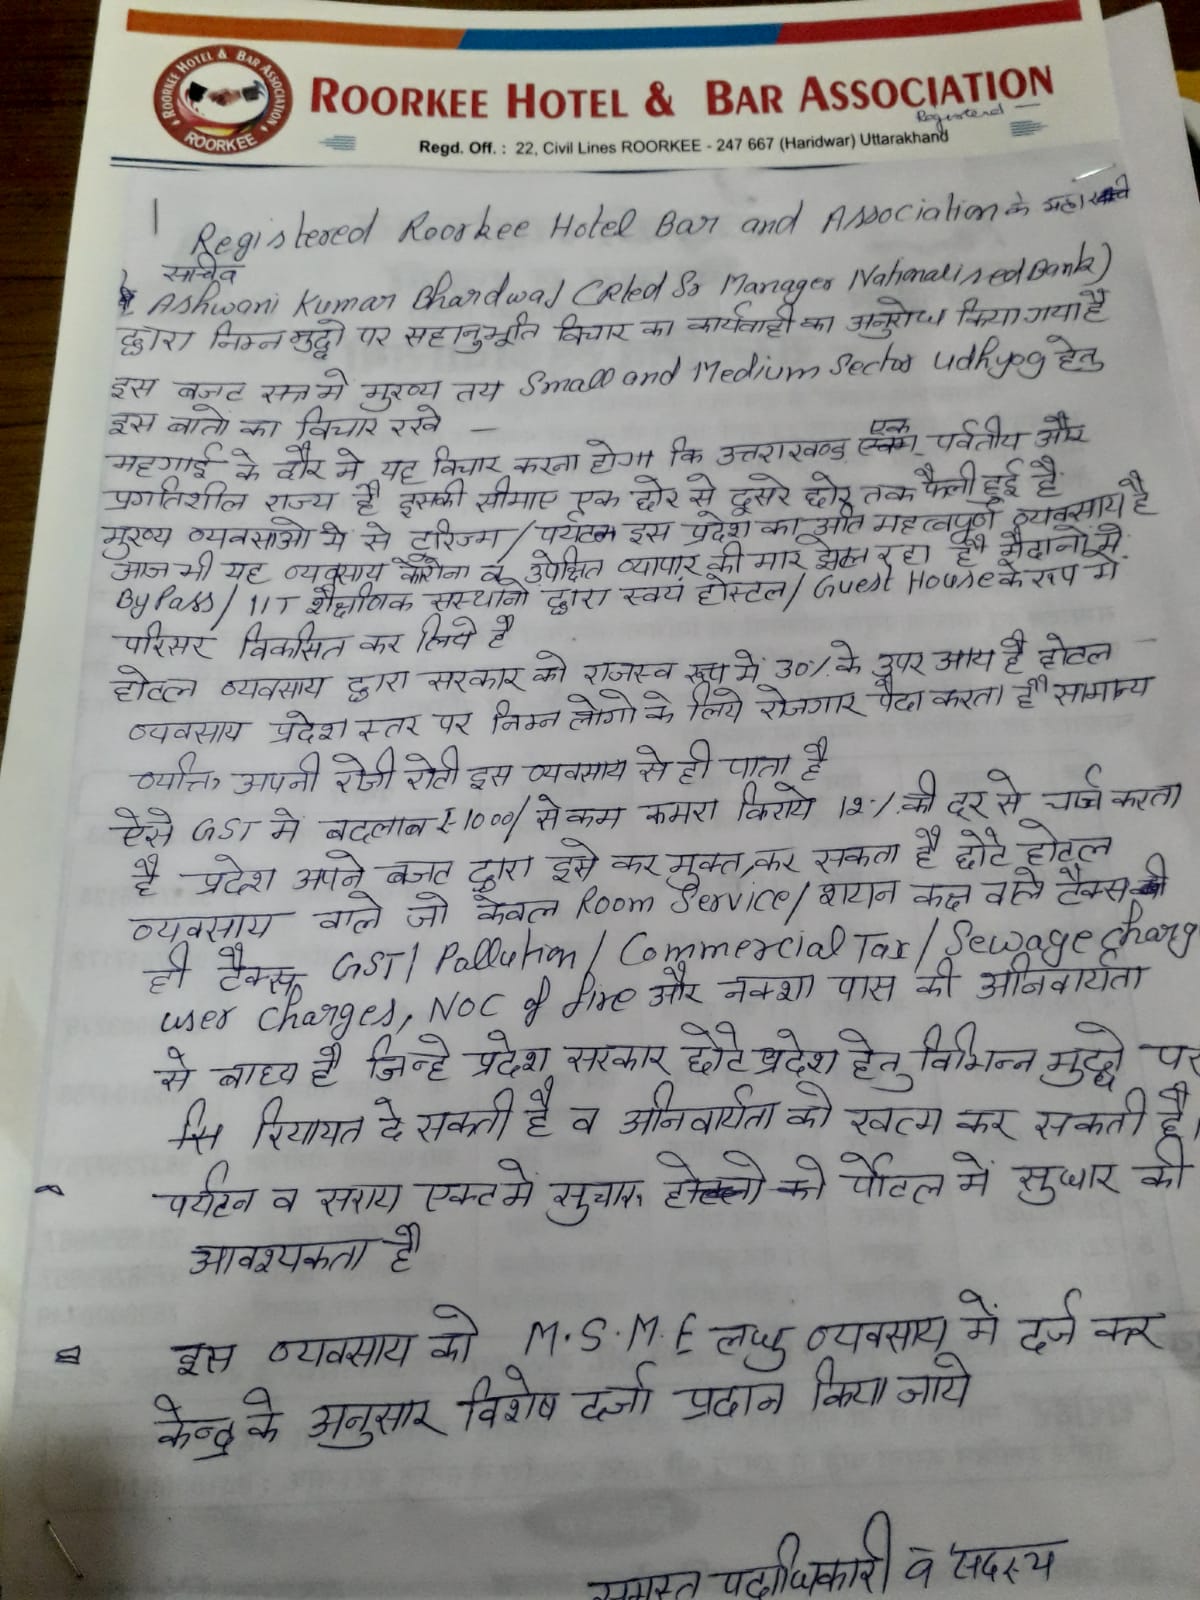 ROORKEE HOTEL & BAR ASSOCIATION
ROORKEE
ROORKEE HOTEL & BAR ASSOCIATION
Registered
Regd. Off. : 22, Civil Lines ROORKEE - 247 667 (Haridwar) Uttarakhand
Registered Roorkee Hotel Bar and Association के महा
सचिव
Ashwani Kumar Bhardwaj (Rted Sr Manager Nationalised Bank)
द्वारा निम्न मुद्दो पर सहानुभूति विचार का कार्यवाही का अनुरोध किया गया है
इस बजट सत्र मे मुख्य तय Small and Medium Sector Udhyog हेतु
इस बातो का विचार रखे –
महगाई के दौर मे यह विचार करना होगा कि उत्तराखण्ड एक पर्वतीय और
प्रगतिशील राज्य है इसकी सीमाए एक छोर से दूसरे छोर तक फैली हुई है
मुख्य व्यवसाओ मे से टूरिज्म / पर्यटन इस प्रदेश का अति महत्वपूर्ण व्यवसाय है
आज भी यह व्यवसाय कोरोना व उपेक्षित व्यापार की मार झेल रहा है मैदानो मे
By Pass / IIT शैक्षणिक सस्थानो द्वारा स्वयं होस्टल / Guest House के रूप मे
परिसर विकसित कर लिये है
होटल व्यवसाय द्वारा सरकार को राजस्व रूप में 30% के उपर आय है होटल
व्यवसाय प्रदेश स्तर पर निम्न लोगो के लिये रोजगार पैदा करता है सामान्य
व्यक्ति अपनी रोजी रोटी इस व्यवसाय से ही पाता है
ऐसे GST में बदलाब 1000/ से कम कमरा किराये 12% की दर से चार्ज करता
है प्रदेश अपने बजट द्वारा इसे कर मुक्त कर सकता है छोटे होटल
व्यवसाय वाले जो केवल Room Service / शयन कक्ष वाले टैक्स
ही टैक्स GST / Pollution / Commercial Tax / Sewage Charg
user charges, NOC of fire और नक्शा पास की अनिवार्यता
से बाध्य है जिन्हे प्रदेश सरकार छोटे प्रदेश हेतु विभिन्न मुद्दो पर
रियायत दे सकती है व अनिवार्यता को खत्म कर सकती है।
पर्यटन व सराय एक्ट मे सुचारू होटलो को पोर्टल में सुधार की
आवश्यकता है
इस व्यवसाय को M.S.M.E लघु व्यवसाय में दर्ज कर
केन्द्र के अनुसार विशेष दर्जा प्रदान किया जाये
समस्त पदाधिकारी व सदस्य